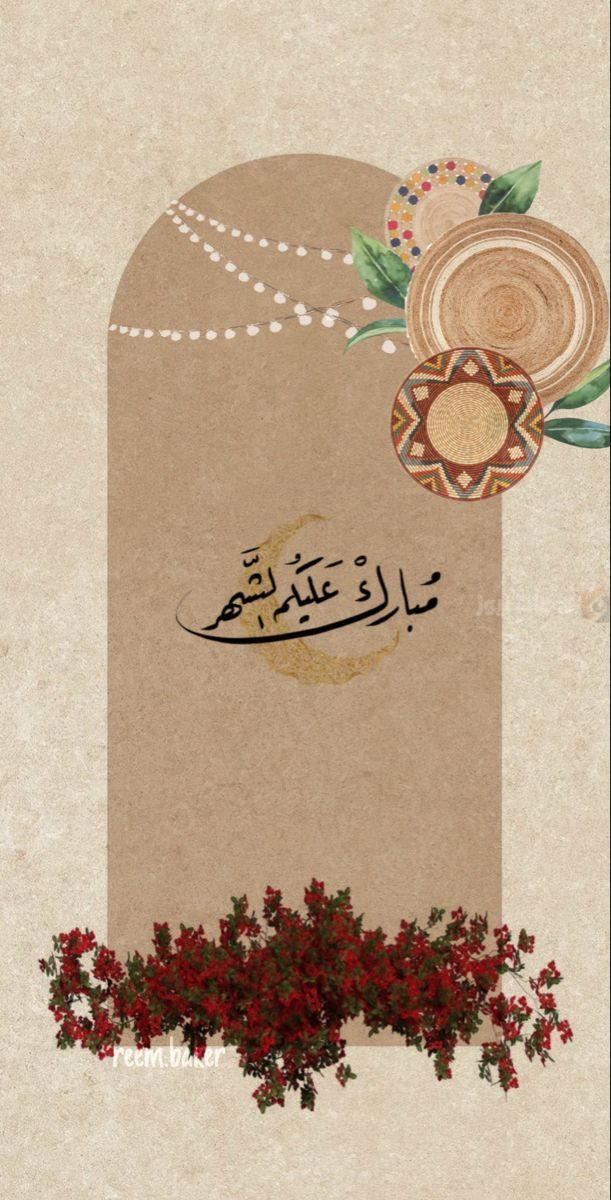 مُبارك عَليكُم الشَّهر
reem.baker